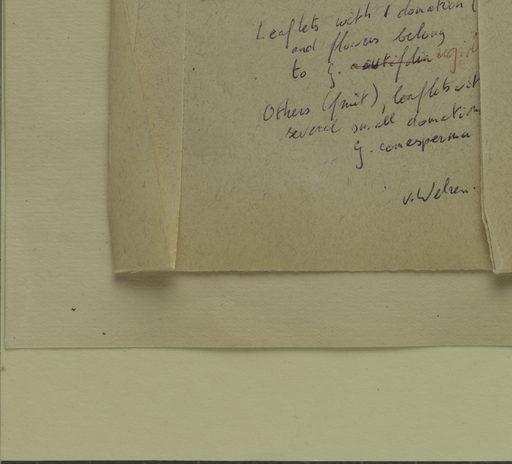 Leaflets with 1 domation (
and flowers belong
to G.
Others (fruit), leaflets wit
several small domation
G. conesperma
v. Welzen.